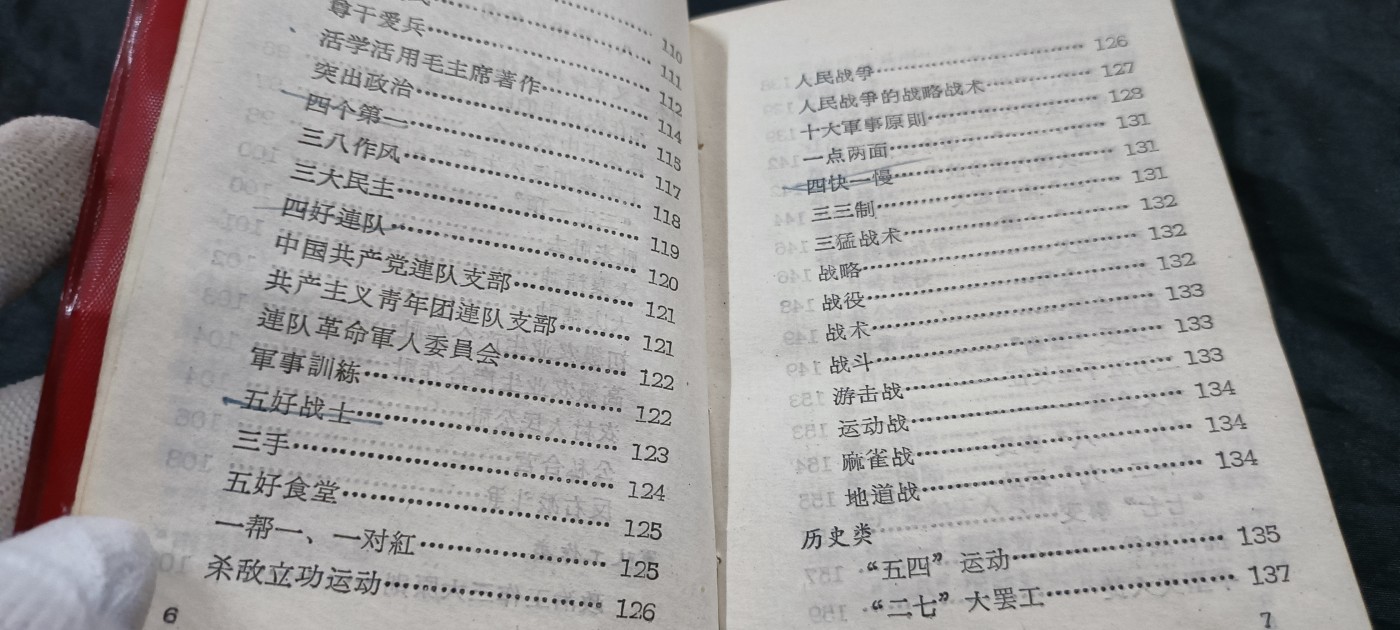 110
111
尊干爱兵……112
活学活用毛主席著作……114
突出政治……115
四个第一……117
三八作风……118
三大民主……119
四好連队……120
中国共产党連队支部……121
共产主义青年团連队支部……121
連队革命軍人委員会……122
軍事訓練……122
五好战士……123
三手……124
五好食堂……125
一帮一、一对紅……125
杀敌立功运动……126
6
人民战争……126
人民战争的战略战术……127
十大軍事原則……128
一点两面……131
四快一慢……131
三三制……131
三猛战术……132
战略……132
战役……132
战术……133
战斗……133
游击战……133
运动战……134
麻雀战……134
地道战……134
历史类
“五四”运动……135
“二七”大罢工……137
7